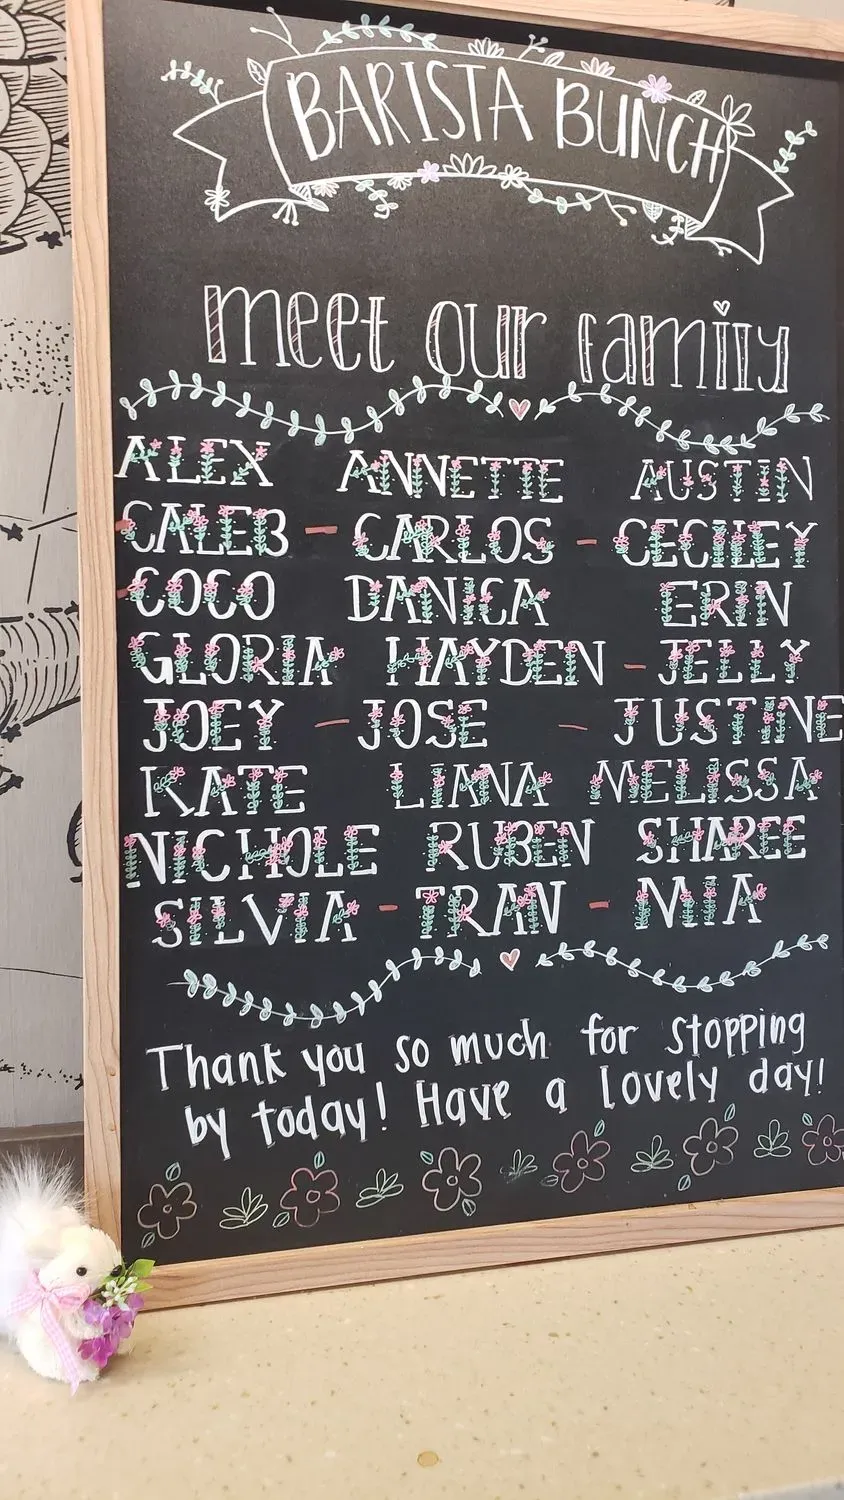 BARISTA BUNCH
meet our family
ALEX ANNETTE AUSTIN
- CALEB - CARLOS - CECILEY
- COCO DANICA ERIN
GLORIA HAYDEN - JELLY
JOEY - JOSE - JUSTINE
KATE LIANA MELISSA
NICHOLE RUBEN SHAREE
SILVIA - TRAN - MIA
Thank you so much for stopping
by today! Have a lovely day!